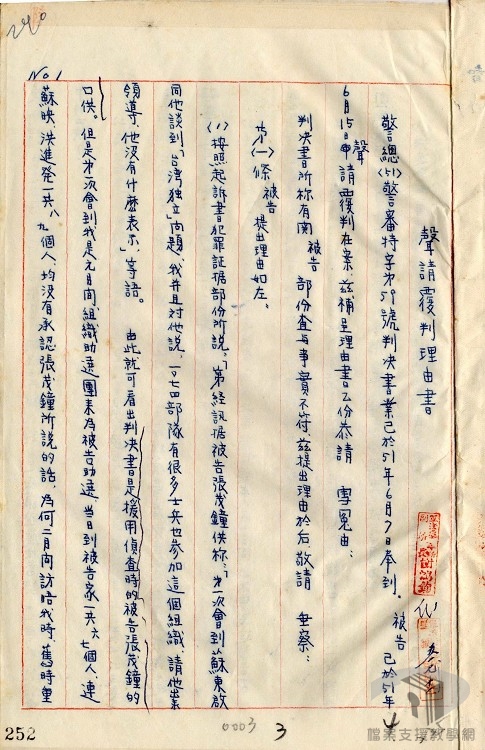 290
No 1
聲請覆判理由書
警總(51)警審特字第59號判決書業已於51年6月7日奉到。被告已於51年
6月15日聲申請覆判在案,茲補呈理由書乙份恭請 雪冤由:
判決書所称有関 被告 部份查与事實不符,茲提出理由於后敬請 垂察:
第(一)條被告 提出理由如左:
(1)按照起訴書犯罪証據部份所説:「第経訊據被告張茂鐘供称:「第一次會到蘇東啟
同他談到「台湾独立」問題,我并且対他說,一〇七四部隊有很多士兵也参加這個組織,請他出來
領導,他沒有什麽表示」等語。 由此就可看出判決書是援用偵查時的被告張茂鐘的
口供。但是第一次會到我是元月間,組織助選團來為被告助選,當日到被告家一共六七個人,連
蘇映 洪進発一共八九個人,均沒有承認張茂鐘所說的話,為何二月間訪唔我時,舊時重
252
0003
3
檔案支援教學網